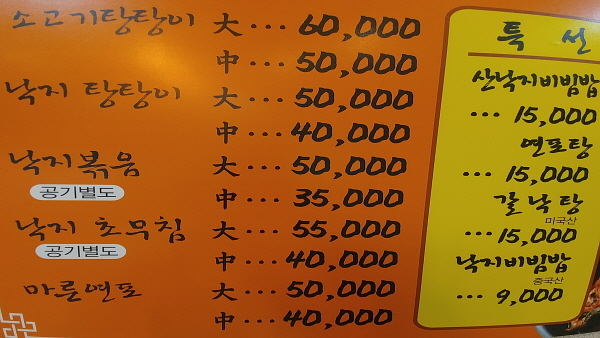 소고기탕탕이 大 ··· 60,000
中 ··· 50,000
낙지 탕탕이 大 ··· 50,000
中 ··· 40,000
낙지볶음 大 ··· 50,000
공기별도 中 ··· 35,000
낙지 초무침 大 ··· 55,000
공기별도 中 ··· 40,000
마른연포 大 ··· 50,000
中 ··· 40,000
특선
산낙지비빔밥
··· 15,000
연포탕
··· 15,000
갈낙탕
미국산
··· 15,000
낙지비빔밥
중국산
··· 9,000